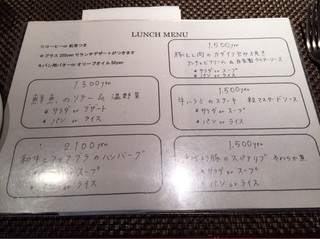 LUNCH MENU
※コーヒーor 紅茶つき
※プラス 200yen サラダ デザートがつきます
※パン用バター or オリーブオイル 50yen
1,300yen
鮮魚のソテー & 温野菜
※サラダ or デザート
※パン or ライス
2,100yen
和牛とフォアグラのハンバーグ
or スープ
or ライス
1,500yen
豚ヒレ肉の
アンチョビクリーム & 自家製
※サラダ or スープ
※パン or ライス
1,500yen
牛ハラミのステーキ 粒マスタードソース
※サラダ or スープ
※パン or ライス
1,500yen
豚のスペアリブ やわらか煮
or スープ
or ライス